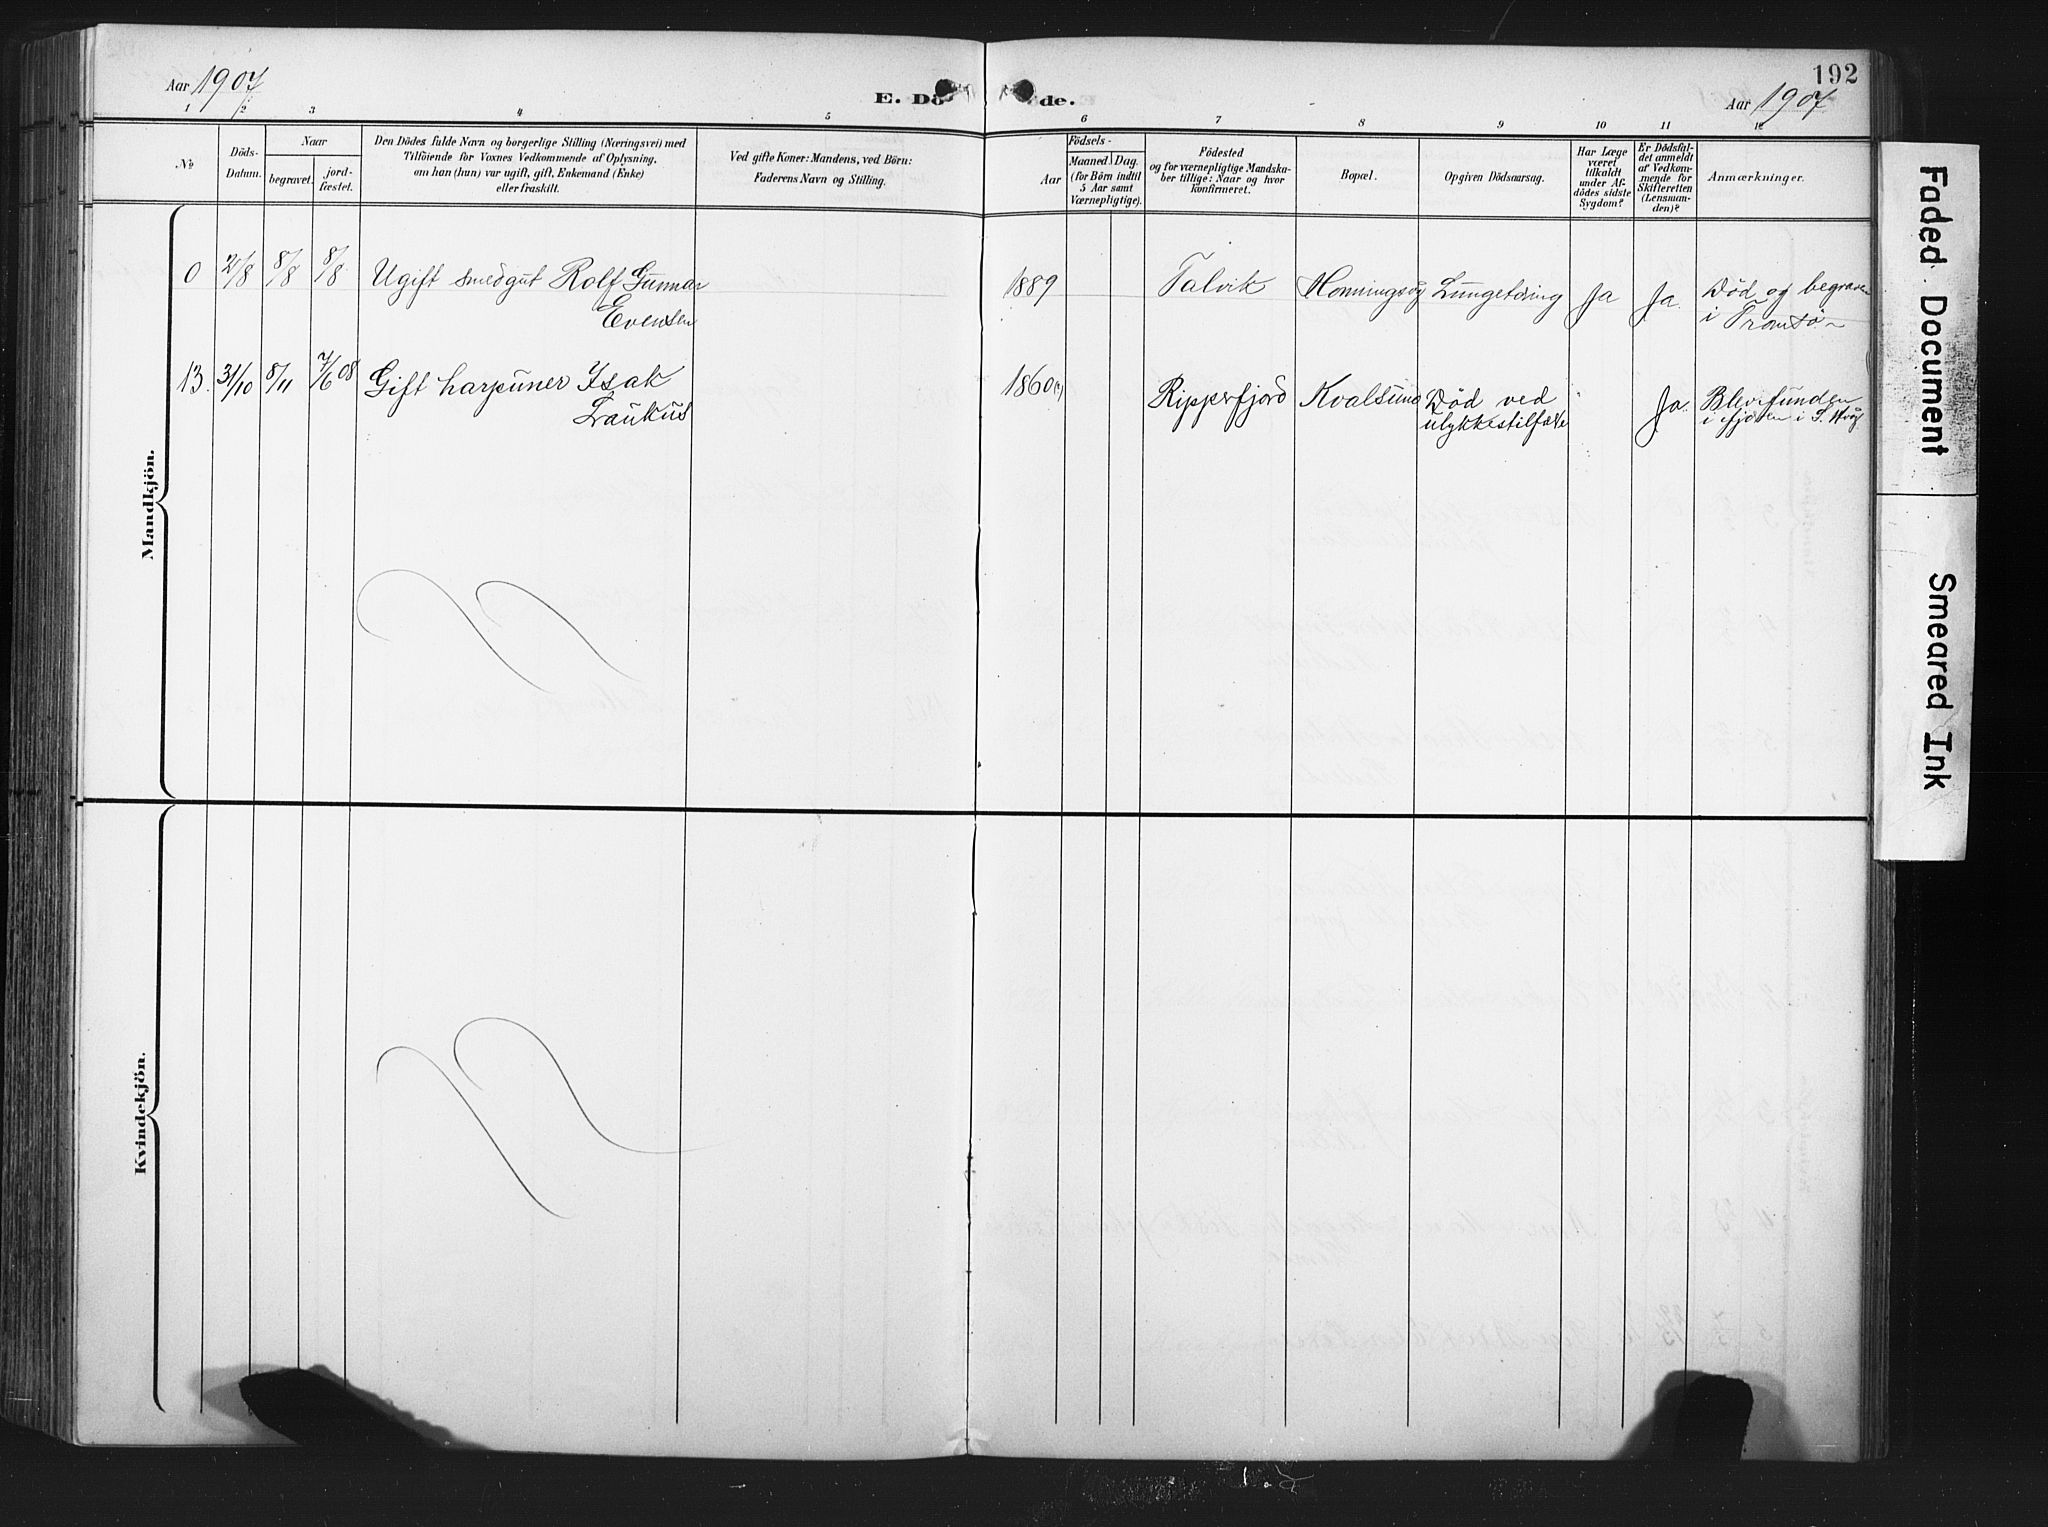 Aar 1907
E. Dö
de.
192
Aar 1907
1 2 3 4 5 6 7 8 9 10 11 12
No
Döds-
Datum.
Naar
begravet.
jord-
fæstet.
Den Dödes fulde Navn og borgerlige Stilling (Næringsvei) med
Tilföiende for Voxnes Vedkommende af Oplysning,
om han (hun) var ugift, gift, Enkemand (Enke)
eller fraskilt.
Ved gifte Koner: Mandens, ved Börn:
Faderens Navn og Stilling.
Födsels-
Aar
Maaned. Dag.
(for Börn indtil
5 Aar samt
Værnepligtige).
Födested
og for værnepligtige Mandska-
ber tillige: Naar og hvor
konfirmeret.
Bopæl.
Opgiven Dödsaarsag.
Har Læge
været
tilkaldt
under Af-
dödes sidste
Sygdom?
Er Dödsfal-
det anmeldt
af Vedkom-
mende for
Skifteretten
(Lensman-
den)?
Anmærkninger.
Mandkjön.
0 2/8 8/8 8/8 Ugift smedgut Rolf Gunnar
Evensen
1889 Talvik Honningsvg Lungetæring Ja Ja. Död og begraven
i Tromsö
13. 31/10 8/11 7/6 08 Gift harpuner Isak
Laukus
1860(?) Ripperfjord Kvalsund Död ved
ulykkestilfælde
" Ja. Blev funden
i fjæren i S. Hvåg
Kvindekjön.
Faded Document
Smeared Ink